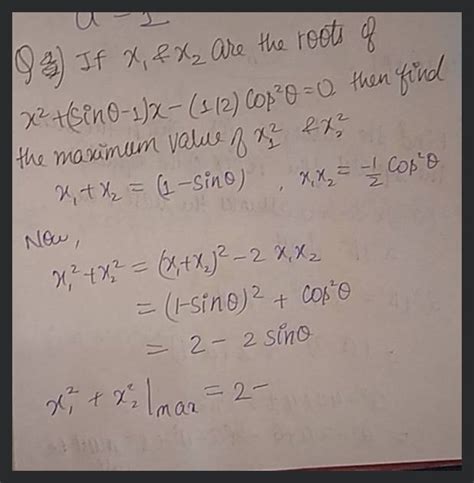 Q) If x₁ & x₂ are the roots of
x² + (sinθ-1)x - (1/2) Cos²θ = 0 then find
the maximum value of x₁² & x₂²
x₁ + x₂ = (1 - sinθ) , x₁x₂ = -1/2 Cos²θ
Now,
x₁² + x₂² = (x₁+x₂)² - 2 x₁x₂
= (1-sinθ)² + Cos²θ
= 2 - 2 sinθ
x₁² + x₂² |max = 2 -